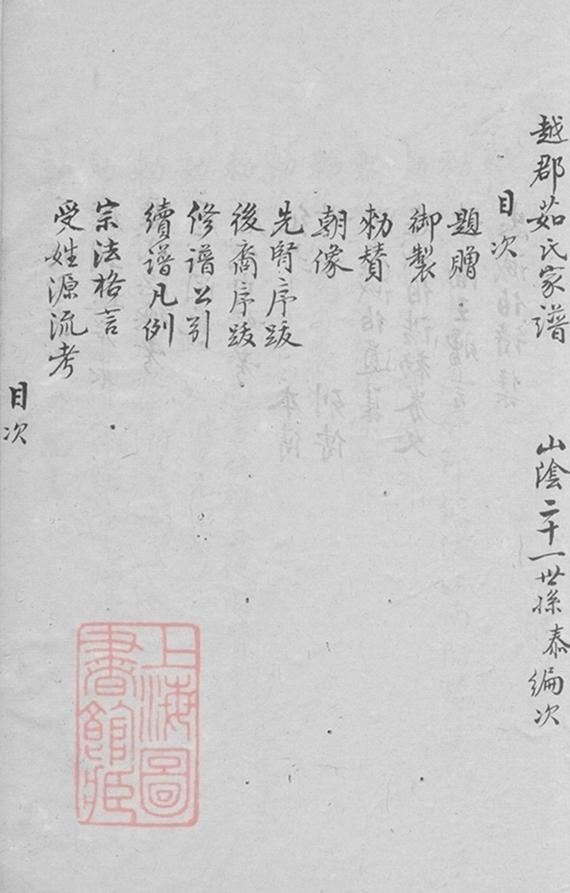 越郡茹氏家谱
山陰二十一世孫泰編次
目次
題贈
御製
勅賛
朝像
先賢序跋
後裔序跋
修谱公引
續谱凡例
宗法格言
受姓源流考
目次
上海圖書館臧